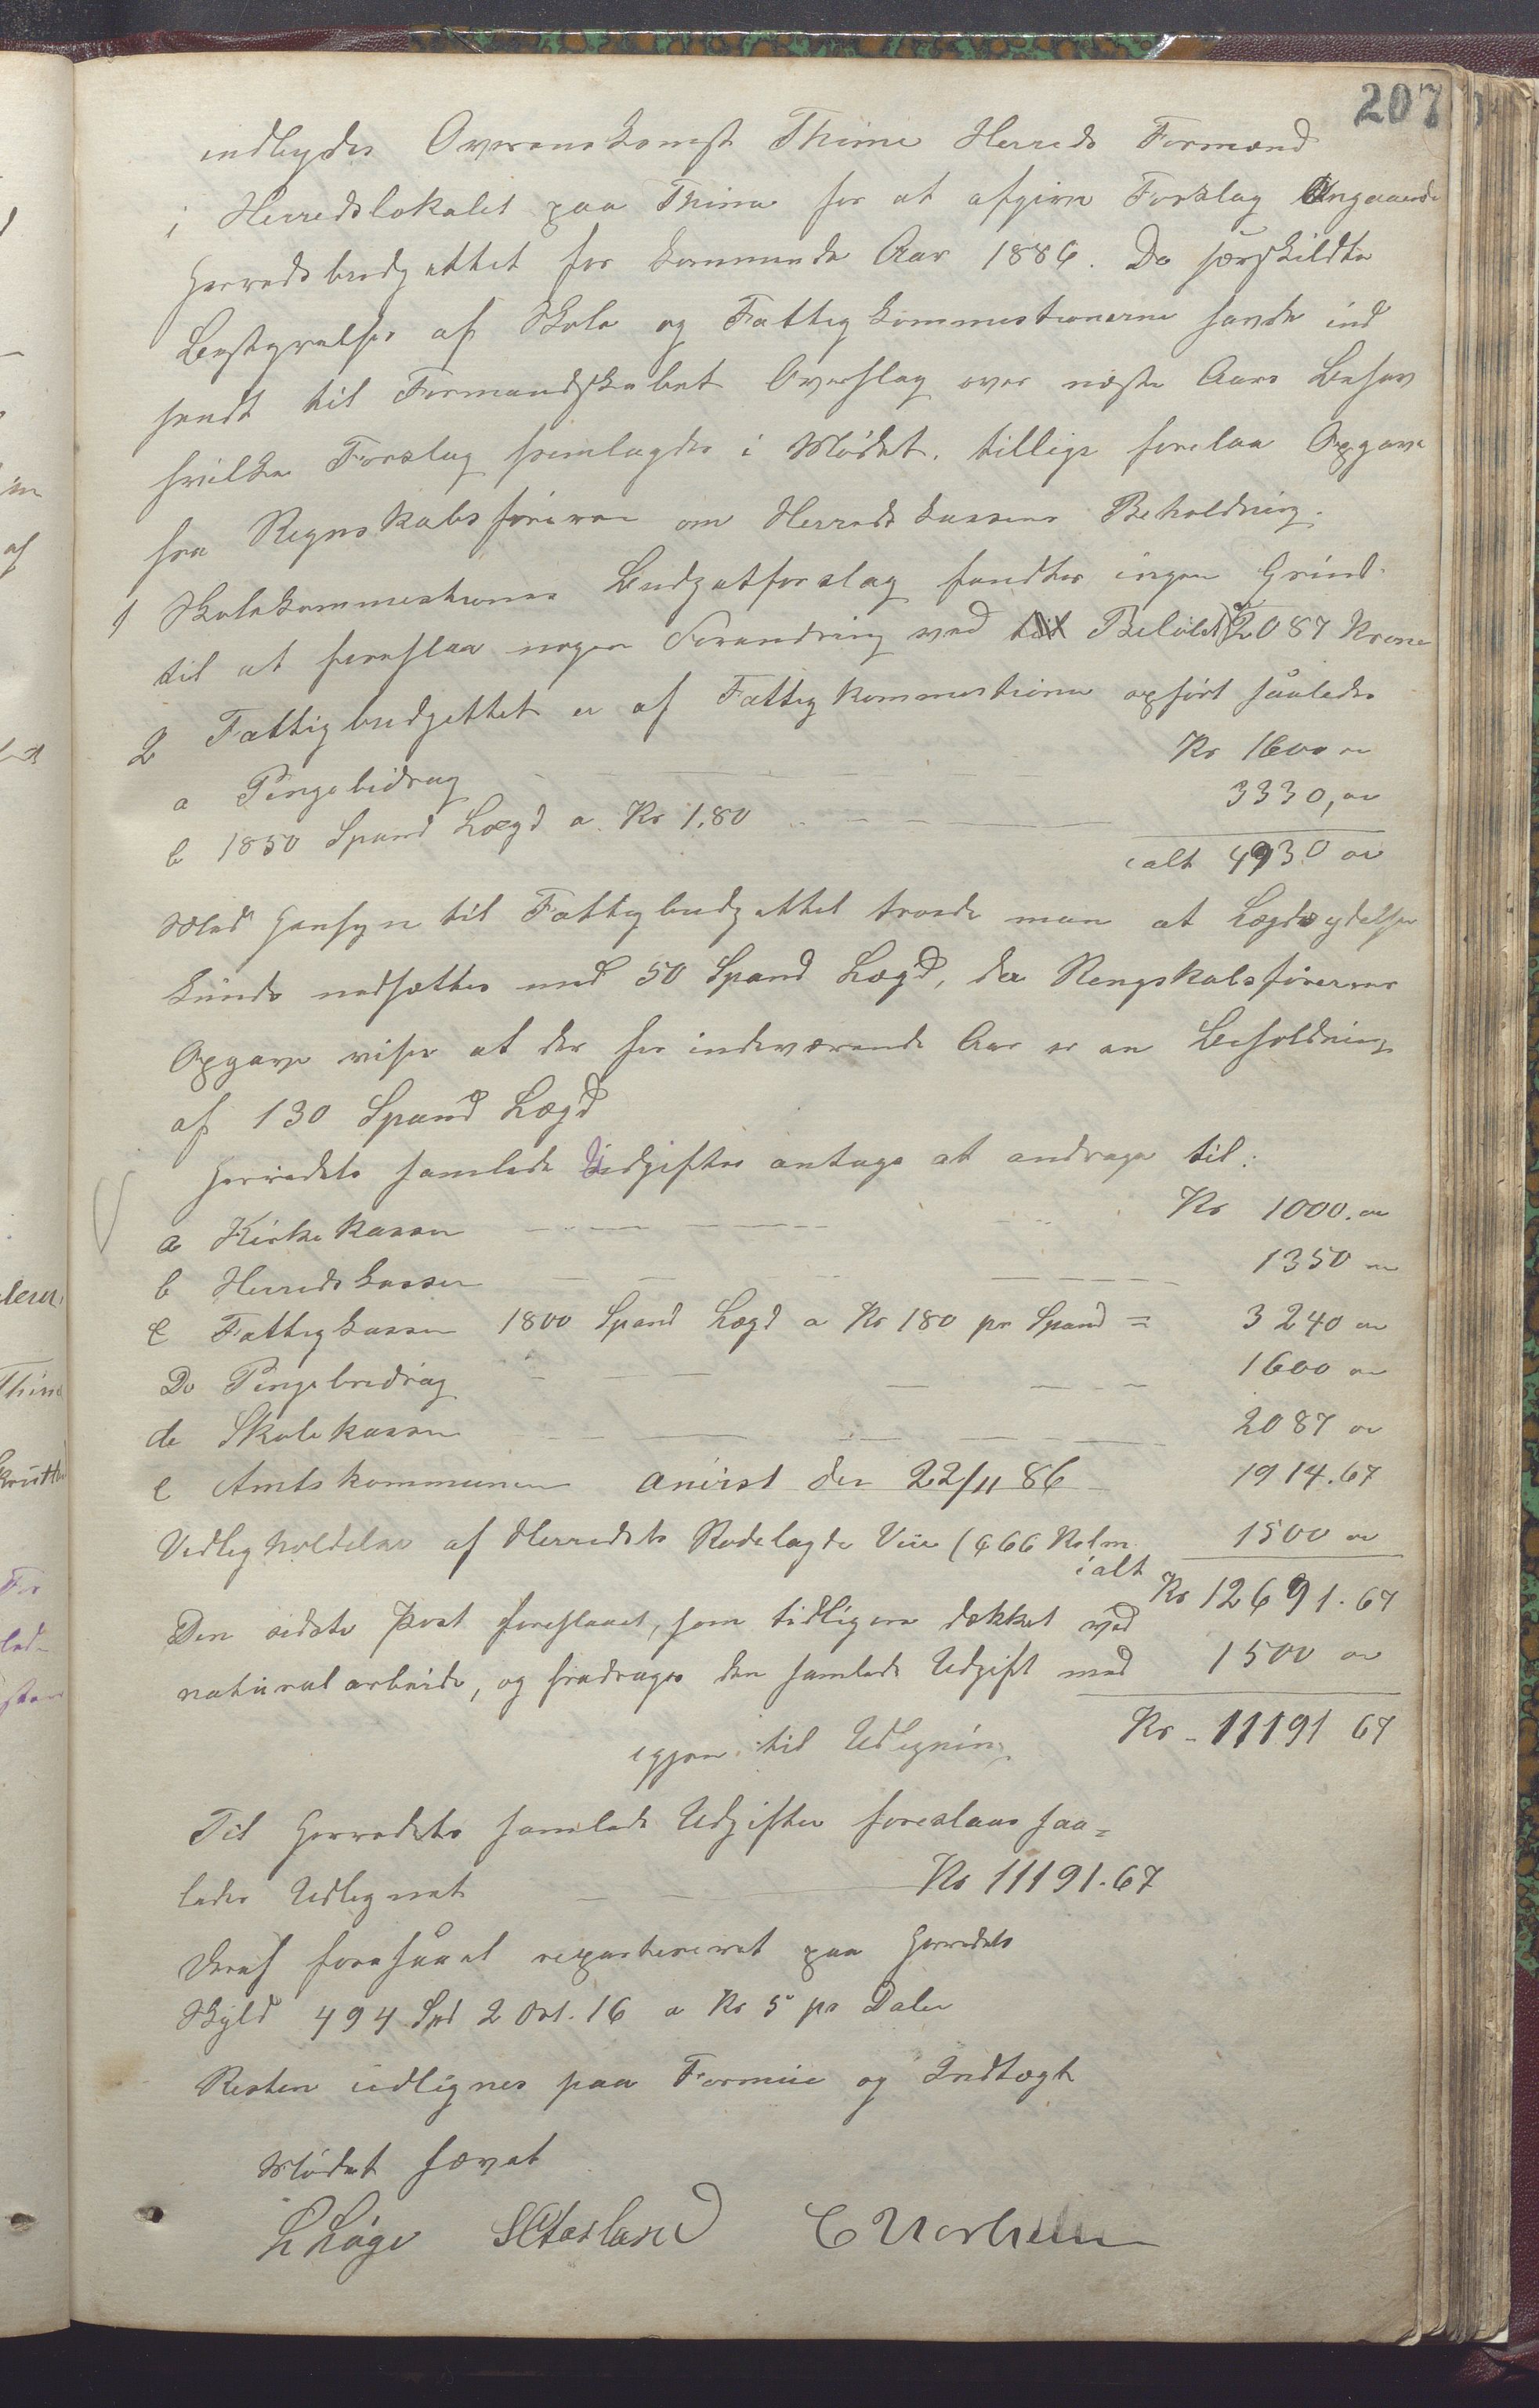 207
indbydes Overenskomst Thime Herreds Formænd
i Herredslokalet paa Thime for at afgive Forslag Angaaende
Herredsbudgettet for kommende Aar 1886. De særskildte
Bestyrelser af Skole og Fattigkommestionerne havde ind
sendt til Formandskabet Overslag over næste Aars Behov
hvilke Forslag fremlagdes i Mødet. tillige forelaa Opgave
fra Regnskabsføreren om Herredskassens Beholdning.
1 Skolekommestionens Budgetforslag fandtes ingen Grund
til at foreslaa nogen Forandring ved Beløbet 2087 Krone
2 Fattigbudgettet er af Fattigkommestionen opført saaledes
a Pengebidrag Kr 1600 "
b 1850 Spand Lægd a. Kr 1.80 3330, "
ialt 4930 "
Med Hensyn til Fattigbudgettet troede man at Lægdsydelsen
kunde nedsættes med 50 Spand Lægd, da Rengskabsførerens
Opgave viser at der for indeværende Aar er en Beholdning
af 130 Spand Lægd
Herredets samlede Udgifter antages at andrage til:
a Kirkekassen Kr 1000. "
b Herredskassen 1350 "
c Fattigkassen 1800 Spand Lægd a Kr 180 pr Spand = 3240 "
Do Pengebidrag 1600 "
d Skolekassen 2087 "
e Amtskommunen anvist den 22/11 86 1914.67
Vedligholdelse af Herredets Rodelagde Veie (666 Kolm. 1500 "
ialt Kr 12691.67
Den sidste Post foreslaaet, som tidligere dækket ved
naturalarbeide, og fradrages den samlede Udgift med 1500 "
igjen til Udligning Kr - 11191 67
Til Herredets samlede Udgifter foreslaaes saa=
ledes Udlignet Kr 11191.67
Deraf foreslaaet reparteret paa Herredets
Skyld 494 Spd 2 Ort. 16 a Kr 5 pr Daler
Resten udlignes paa Formue og Indtægt
Mødet hævet